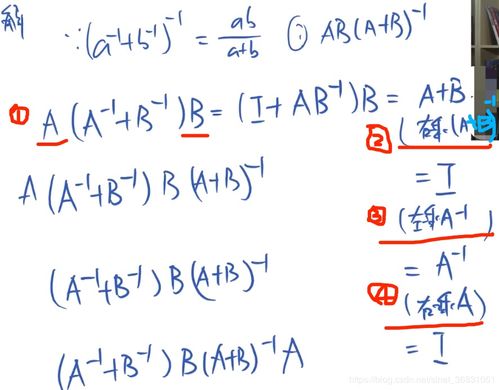 解 ∵(a⁻¹+b⁻¹)⁻¹ = ab/(a+b) ① AB(A+B)⁻¹
① A(A⁻¹+B⁻¹)B = (I+AB⁻¹)B = A+B
② (右乘(A+B)⁻¹
A(A⁻¹+B⁻¹)B(A+B)⁻¹ = I
③ (左乘A⁻¹)
(A⁻¹+B⁻¹)B(A+B)⁻¹ = A⁻¹
④ (右乘A)
(A⁻¹+B⁻¹)B(A+B)⁻¹A = I